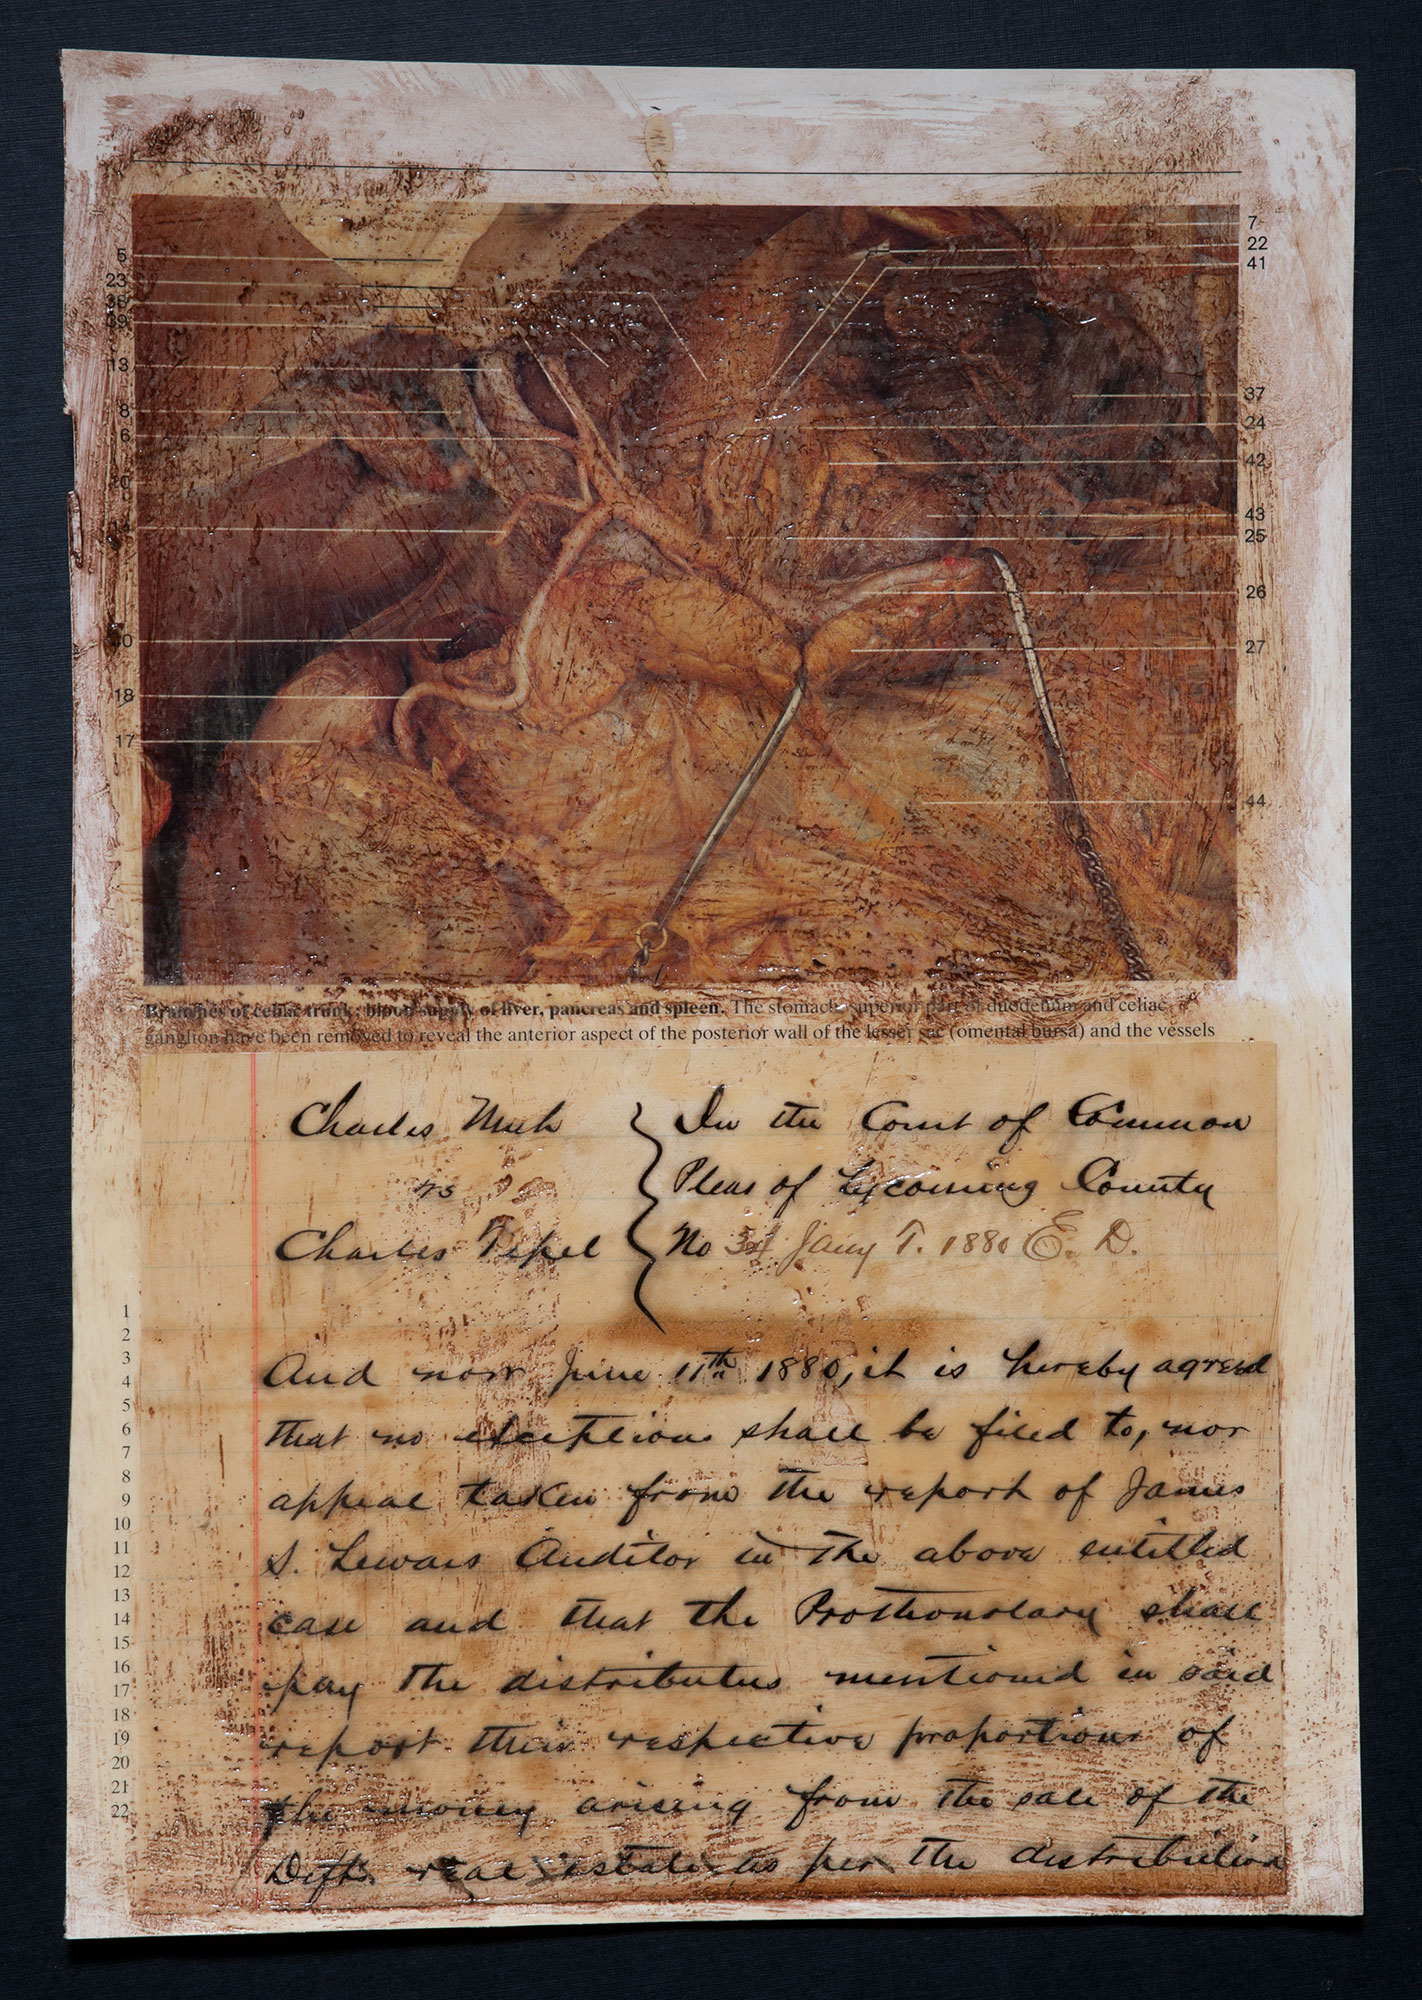 5
23
38
39
13
8
6
30
18
17
7
22
41
37
24
42
43
25
26
27
44
Branches of celiac trunk: blood supply of liver, pancreas and spleen. The stomach, superior part of duodenum and celiac
ganglion have been removed to reveal the anterior aspect of the posterior wall of the lesser sac (omental bursa) and the vessels
Charles
vs
Charles
In the Court of Common
Pleas of Lycoming County
No 34 Jany T. 1880 E. D.
And now June 11th 1880, it is hereby agreed
that no exceptions shall be filed to, nor
appeal taken from the report of James
S. Lewars Auditor in the above entitled
case and that the Prothonotary shall
pay the distributees mentioned in said
report their respective proportions of
the money arising from the sale of the
Defts. real estate as per the distribution
1
2
3
4
5
6
7
8
9
10
11
12
13
14
15
16
17
18
19
20
21
22